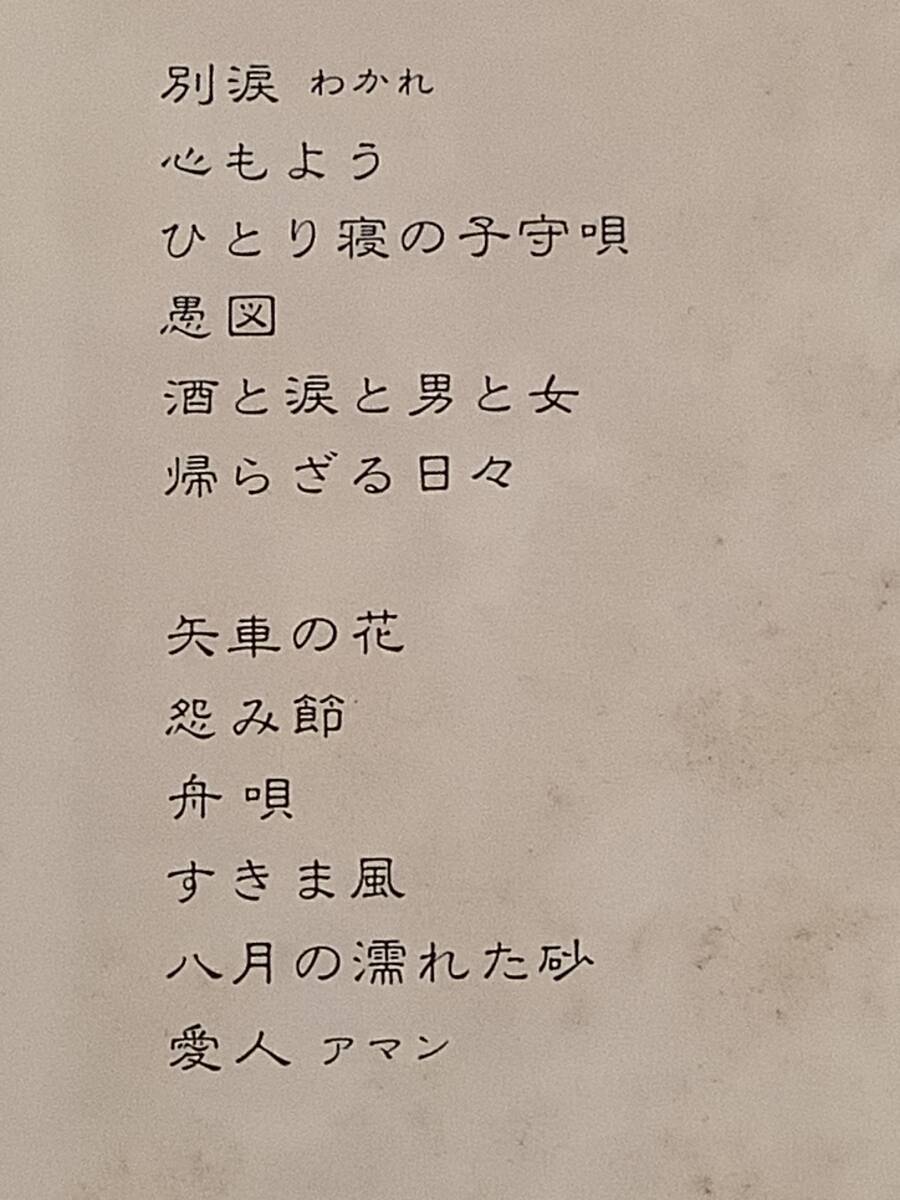 別涙 わかれ
心もよう
ひとり寝の子守唄
愚図
酒と涙と男と女
帰らざる日々
矢車の花
怨み節
舟唄
すきま風
八月の濡れた砂
愛人 アマン